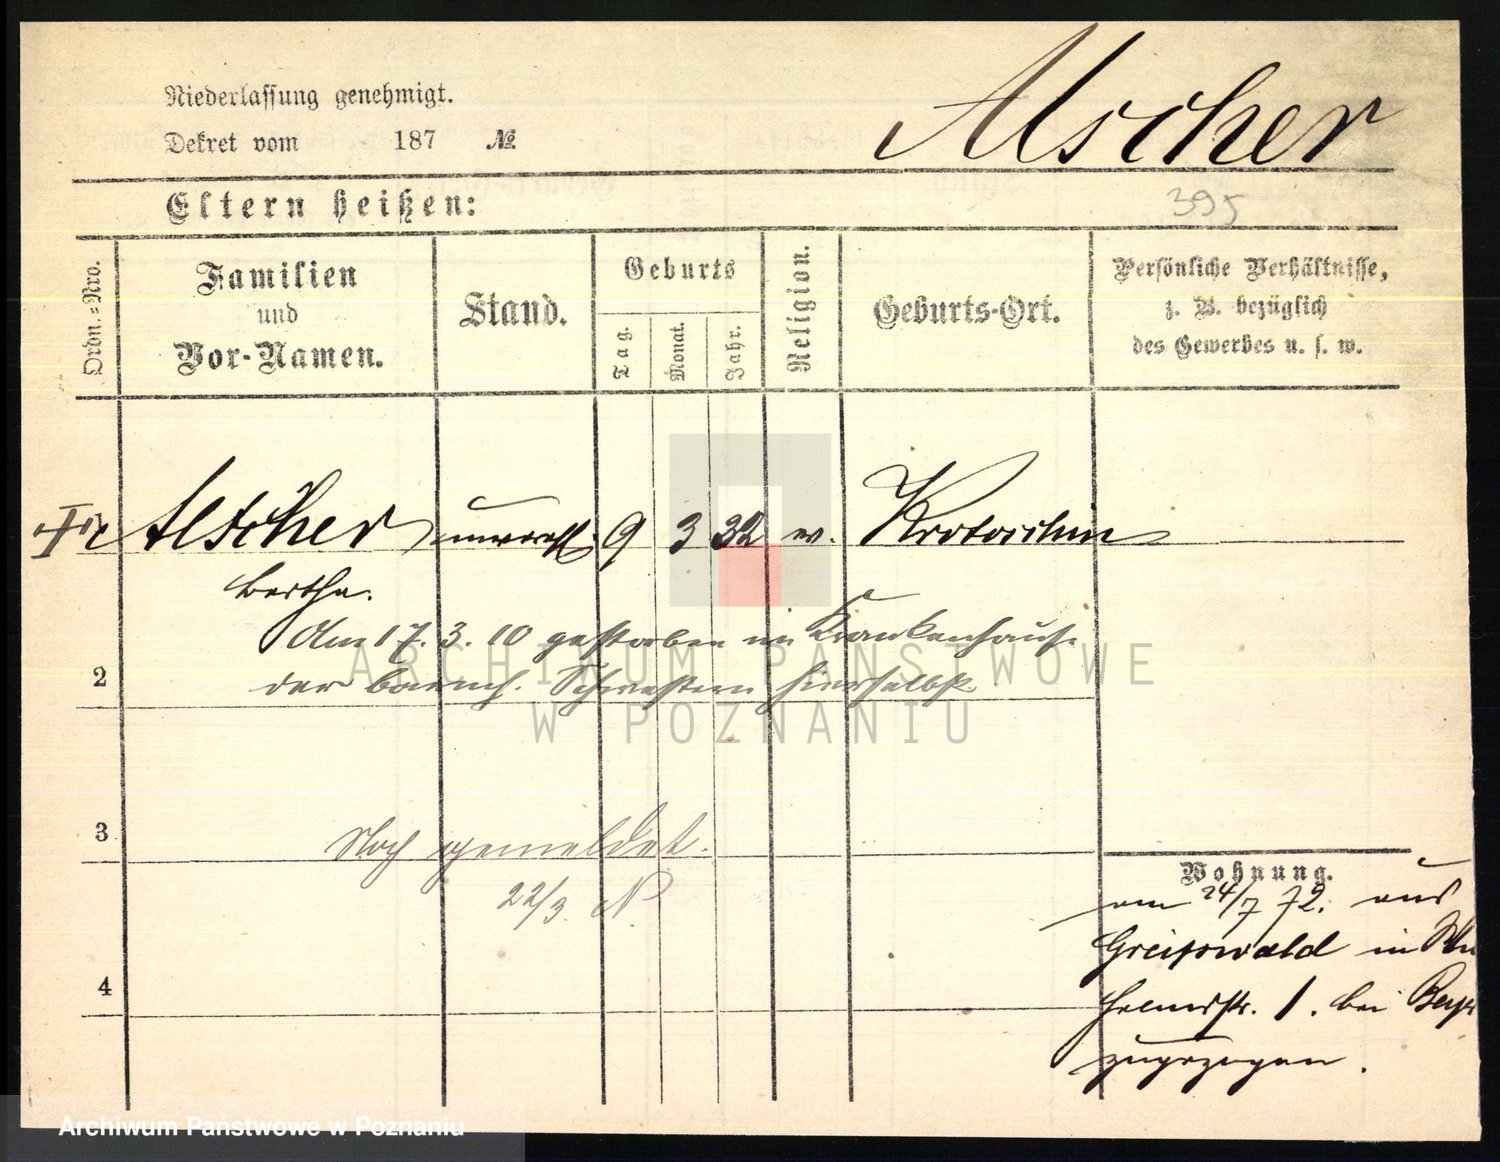 Niederlassung genehmigt.
Dekret vom 187 №
Alscher
Eltern heißen:
395
Ordn.=Nro.
Familien
und
Vor-Namen.
Stand.
Geburts
Tag.
Monat.
Jahr.
Religion.
Geburts-Ort.
Persönliche Verhältnisse,
z. B. bezüglich
des Gewerbes u. s. w.
Alscher unvereh. 9 3 32 ev. Krotoschin
Bertha.
Am 17. 3. 10 gestorben im Krankenhause
2 der barmh. Schwestern hierselbst.
ARCHIWUM PAŃSTWOWE
W POZNANIU
3 Noch gemeldet.
22/3. N
Wohnung.
am 24/7 72. aus
Greifswald in
4
1. bei
zugezogen.
Archiwum Państwowe w Poznaniu